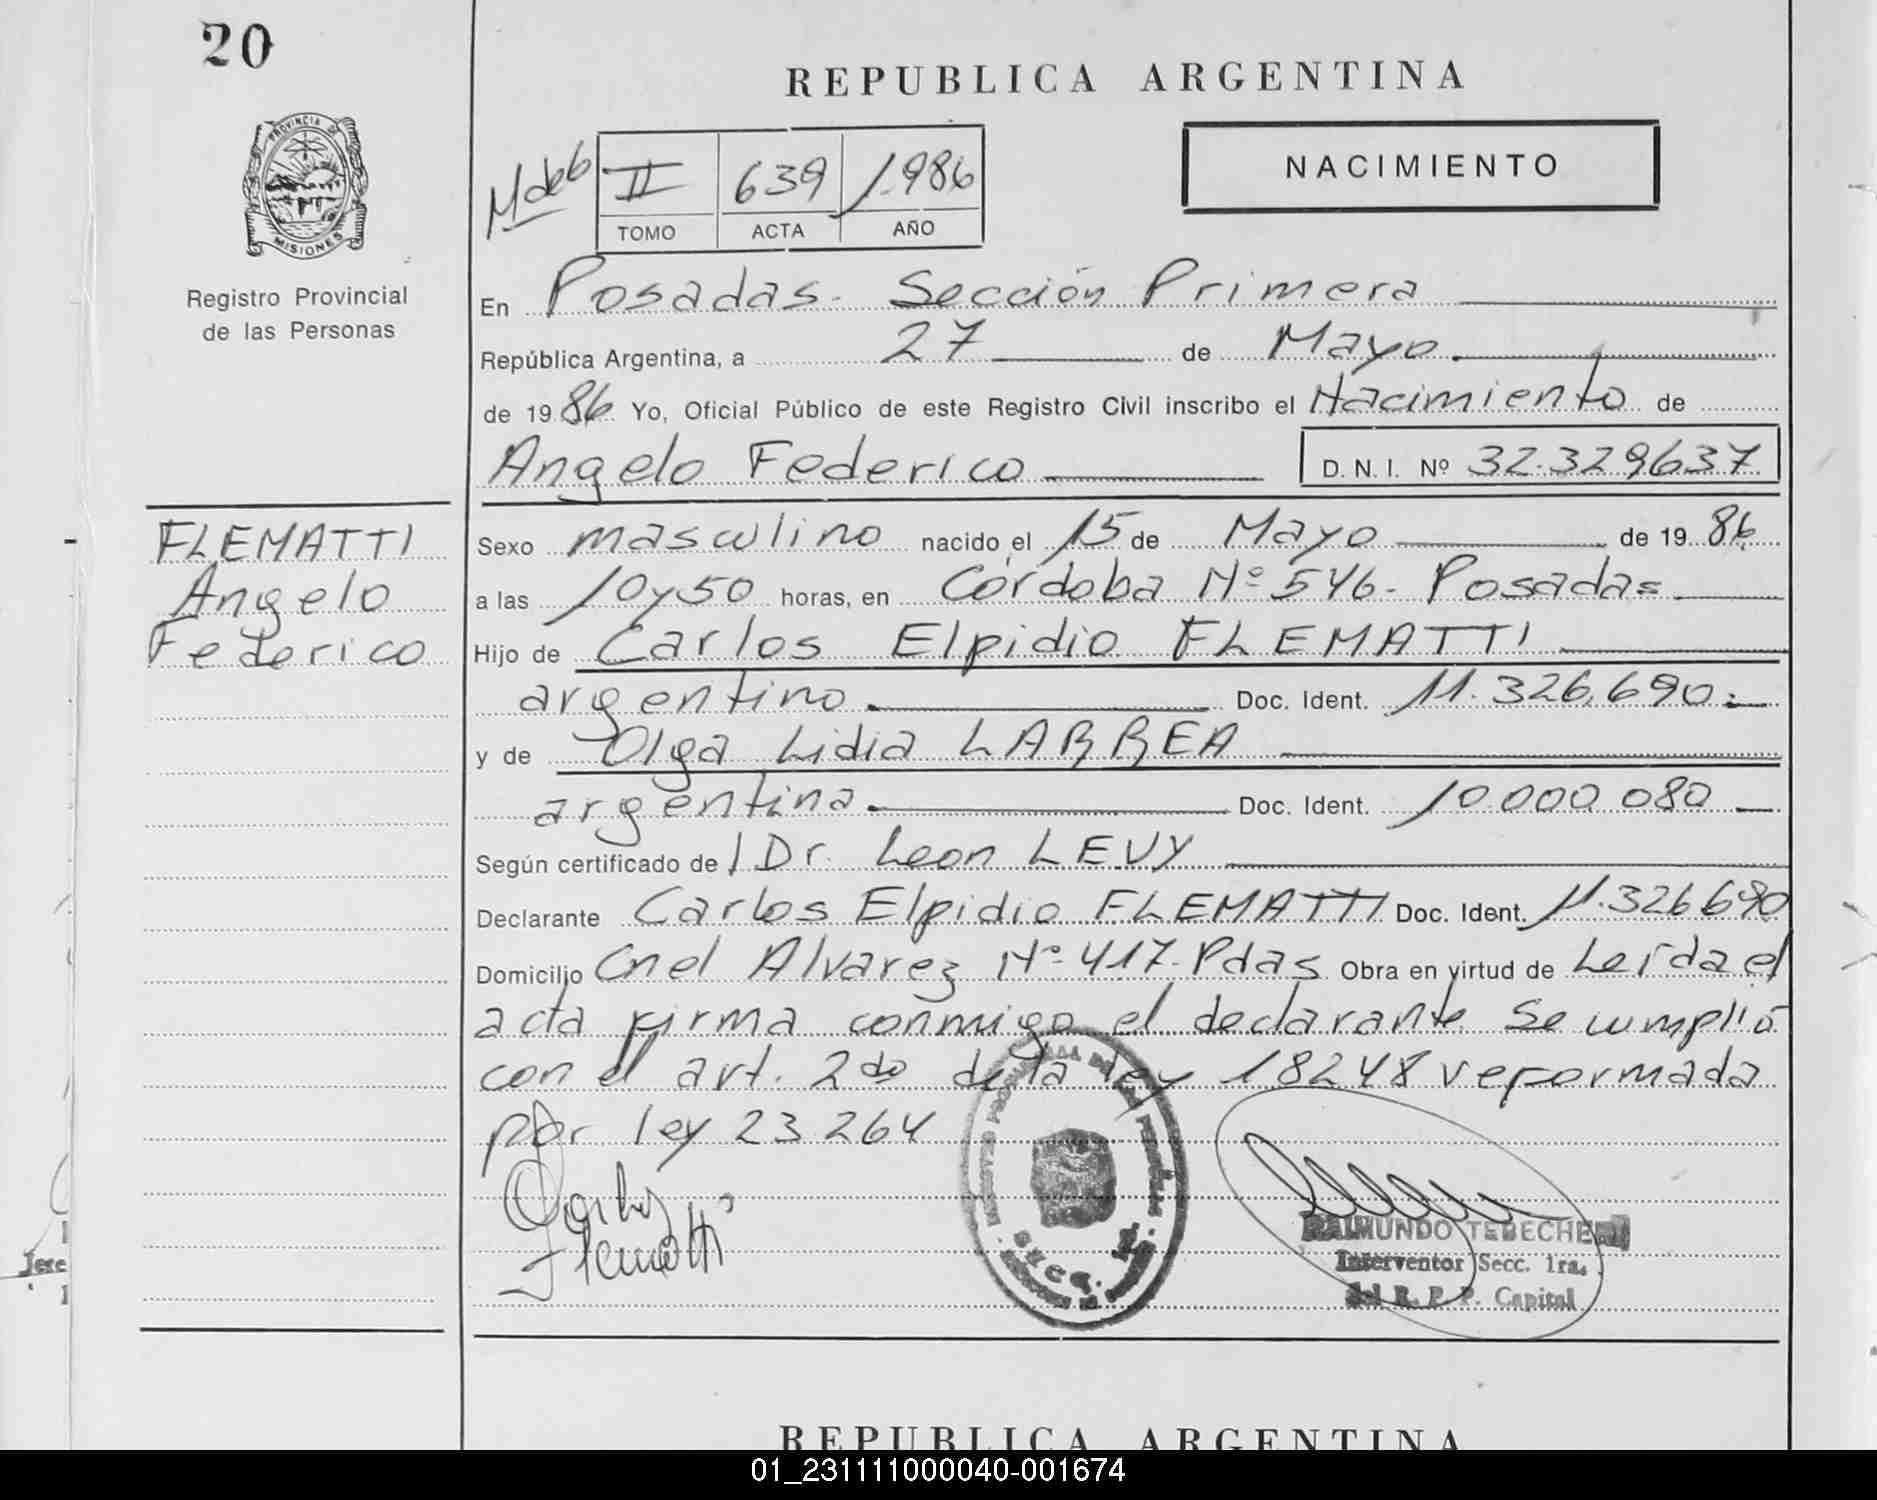 20
PROVINCIA DE
MISIONES
Registro Provincial
de las Personas
REPUBLICA ARGENTINA
NACIMIENTO
M de 6 II 639 1.986
TOMO ACTA AÑO
En Posadas. Sección Primera
República Argentina, a 27 de Mayo
de 1986 Yo, Oficial Público de este Registro Civil inscribo el Nacimiento de
Angelo Federico D.N.I. Nº 32.329637
FLEMATTI
Angelo
Federico
Sexo masculino nacido el 15 de Mayo de 1986
a las 10y50 horas, en Córdoba Nº 546- Posadas
Hijo de Carlos Elpidio FLEMATTI
argentino Doc. Ident. 11.326.690
y de Olga Lidia LARREA
argentina Doc. Ident. 10.000 080
Según certificado de Dr. Leon LEVY
Declarante Carlos Elpidio FLEMATTI Doc. Ident. 11.326690
Domicilio Cnel Alvarez Nº 417. Pdas Obra en virtud de Leída el
acta firma conmigo el declarante se cumplió
con el art. 2do de la ley 18248 reformada
por ley 23.264
Carlos
Flematti
RAIMUNDO TEBECHE
Interventor Secc. 1ra.
del R. P. P. Capital
REPUBLICA ARGENTINA
01_231111000040-001674